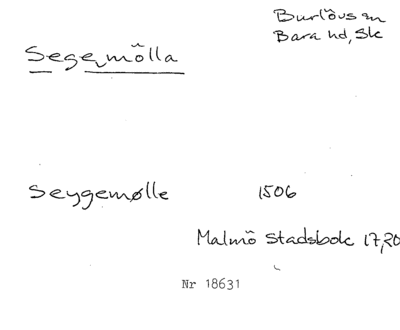 Burlövs sn
Bara hd, Sk
Segemölla
Seygemølle 1506
Malmö Stadsbok 17,20
Nr 18631